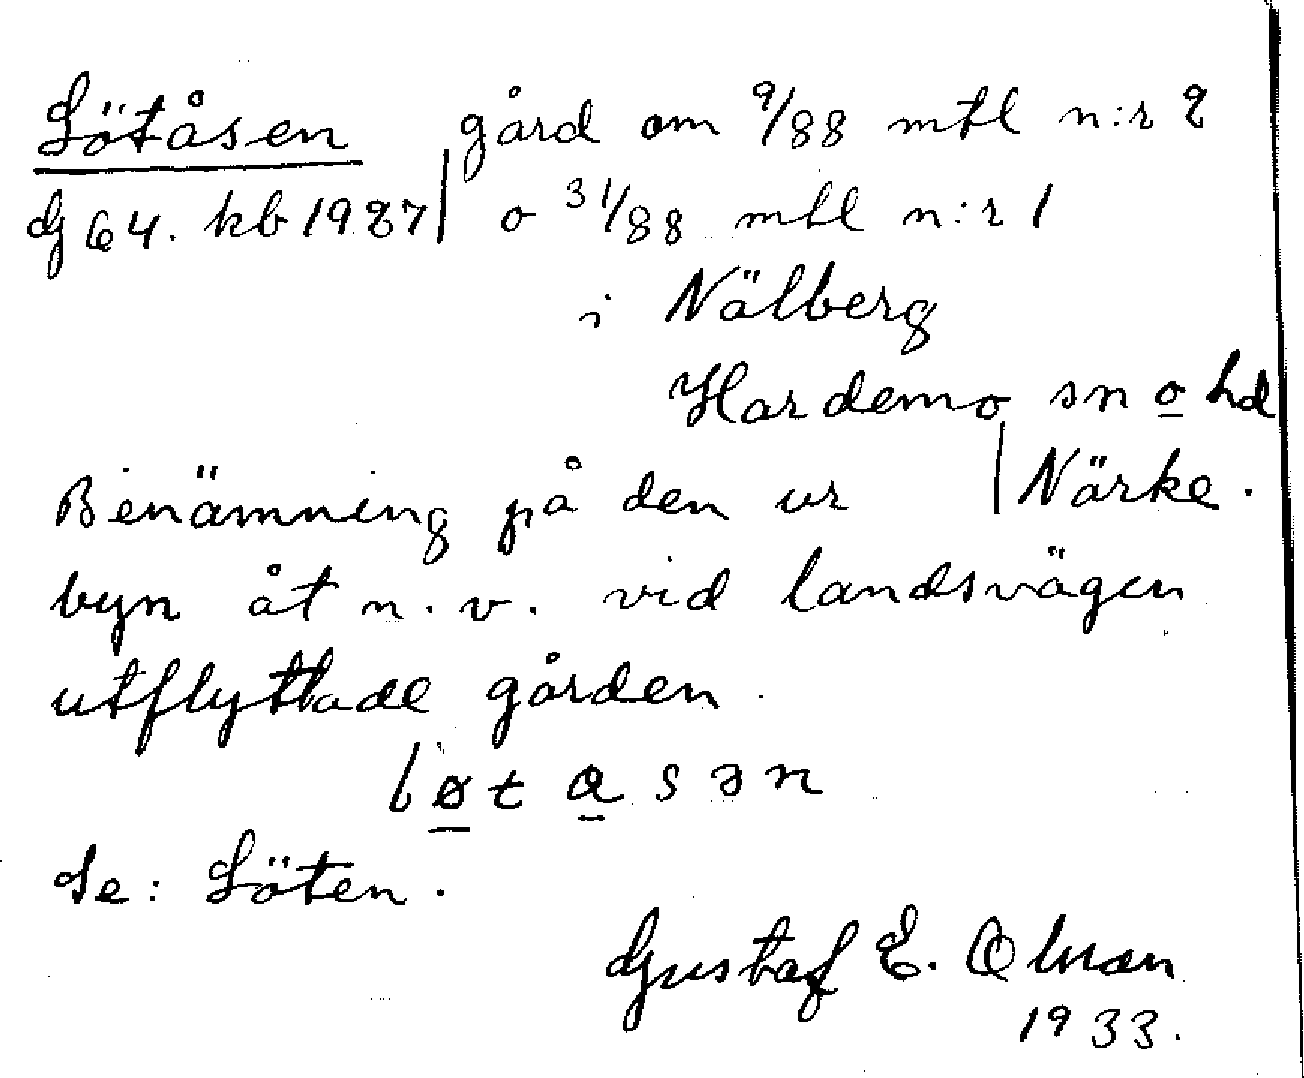 Lötåsen gård om 9/88 mtl n:r 2
G 64. kb 1927 o 31/88 mtl n:r 1
i Nälberg
Hardemo sn o hd
Närke.
Benämning på den ur
byn åt n.v. vid landsvägen
utflyttade gården.
løtasən
Se: Löten.
Gustaf E.
1933.